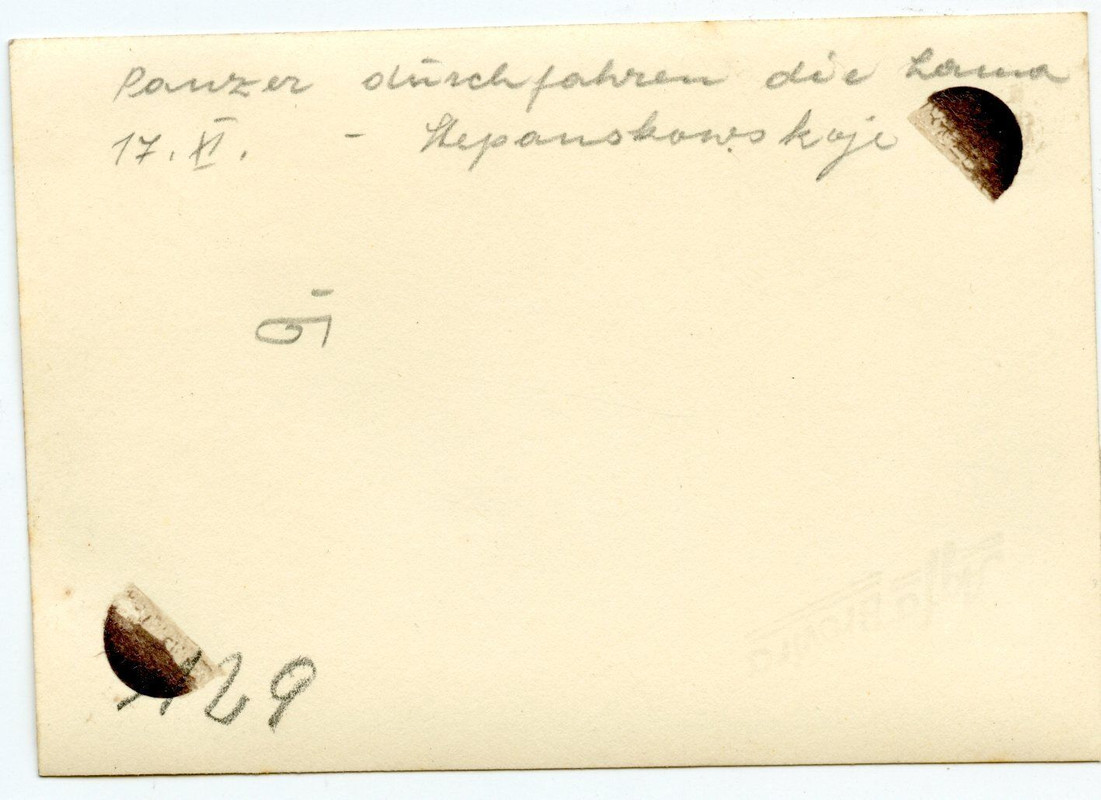 Panzer durchfahren die Lama
17. XI. - Stepanskowskoje
129